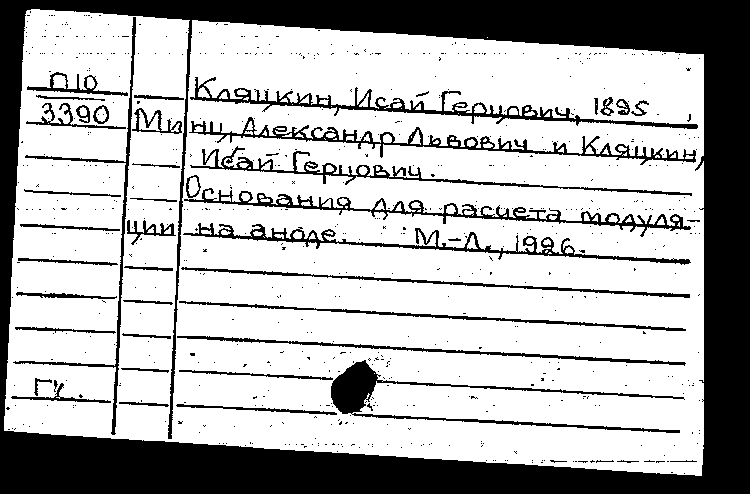 П10
3390
Кляцкин, Исай Герцович, 1895 ,
Минц, Александр Львович и Кляцкин,
Исай Герцович.
Основания для расчета модуля-
ции на аноде. М.-Л., 1926.